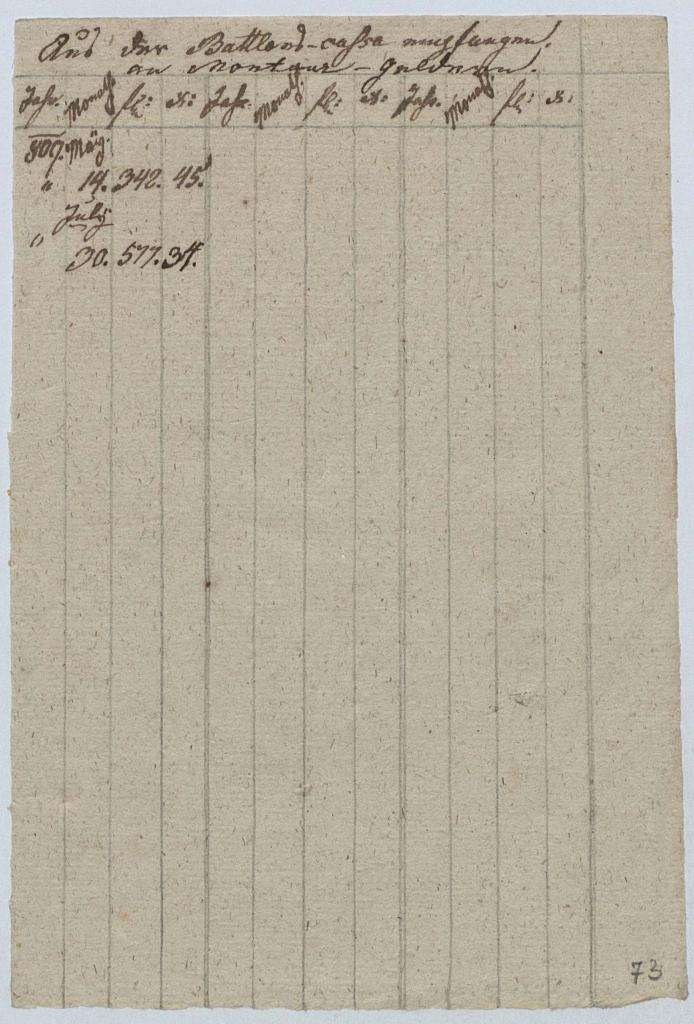 Aus der Battlons-cassa empfangen.
an Montour-Geldern.
Jahr. Monath fl: x: Jahr. Monath. fl: x: Jahr. Monath. fl: x:
809. März.
" 14. 342. 45.
July
" 30. 577. 34.
73